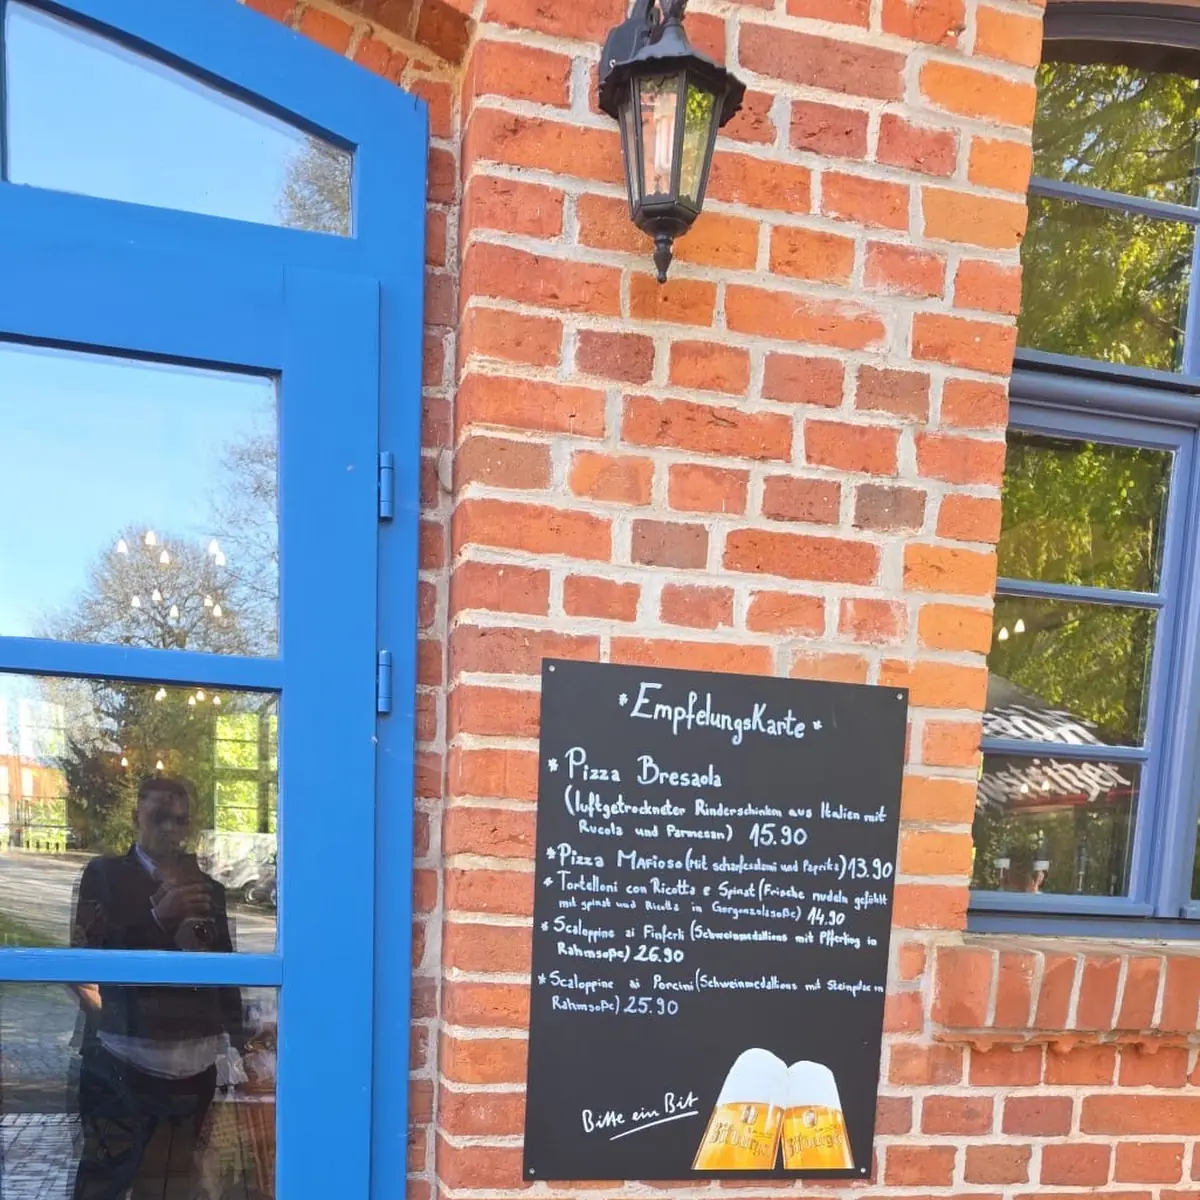 * EmpfelungsKarte *
* Pizza Bresaola
(luftgetrockneter Rinderschinken aus Italien mit
Rucola und Parmesan) 15.90
* Pizza Mafioso (Mit scharfesalami und Paprika) 13.90
* Tortelloni con Ricotta e Spinat (Frische nudeln gefühlt
mit spinat und Ricotta in Gorgonzolasoße) 14.90
* Scaloppine ai Finferli (Schweinmedallions mit Pfferling in
Rahmsoße) 26.90
* Scaloppine ai Porcini (Schweinmedallions mit Steinpilze in
Rahmsoße) 25.90
Bitte ein Bit